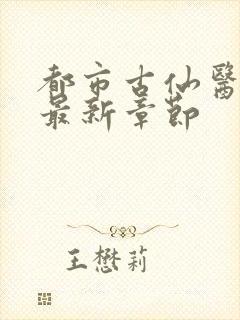 都市古仙醫
最新章節
王懋莉